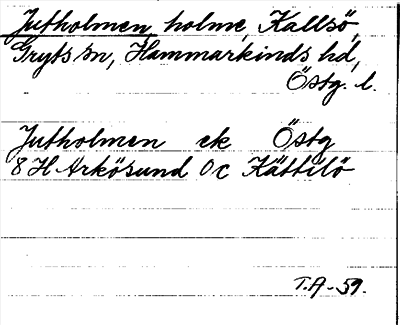 Jutholmen, holme, Kallsö,
Gryts sn, Hammarkinds hd,
Östg. l.
Jutholmen ek Östg
8 H Arkösund Oc Kättilö
T.A-59.